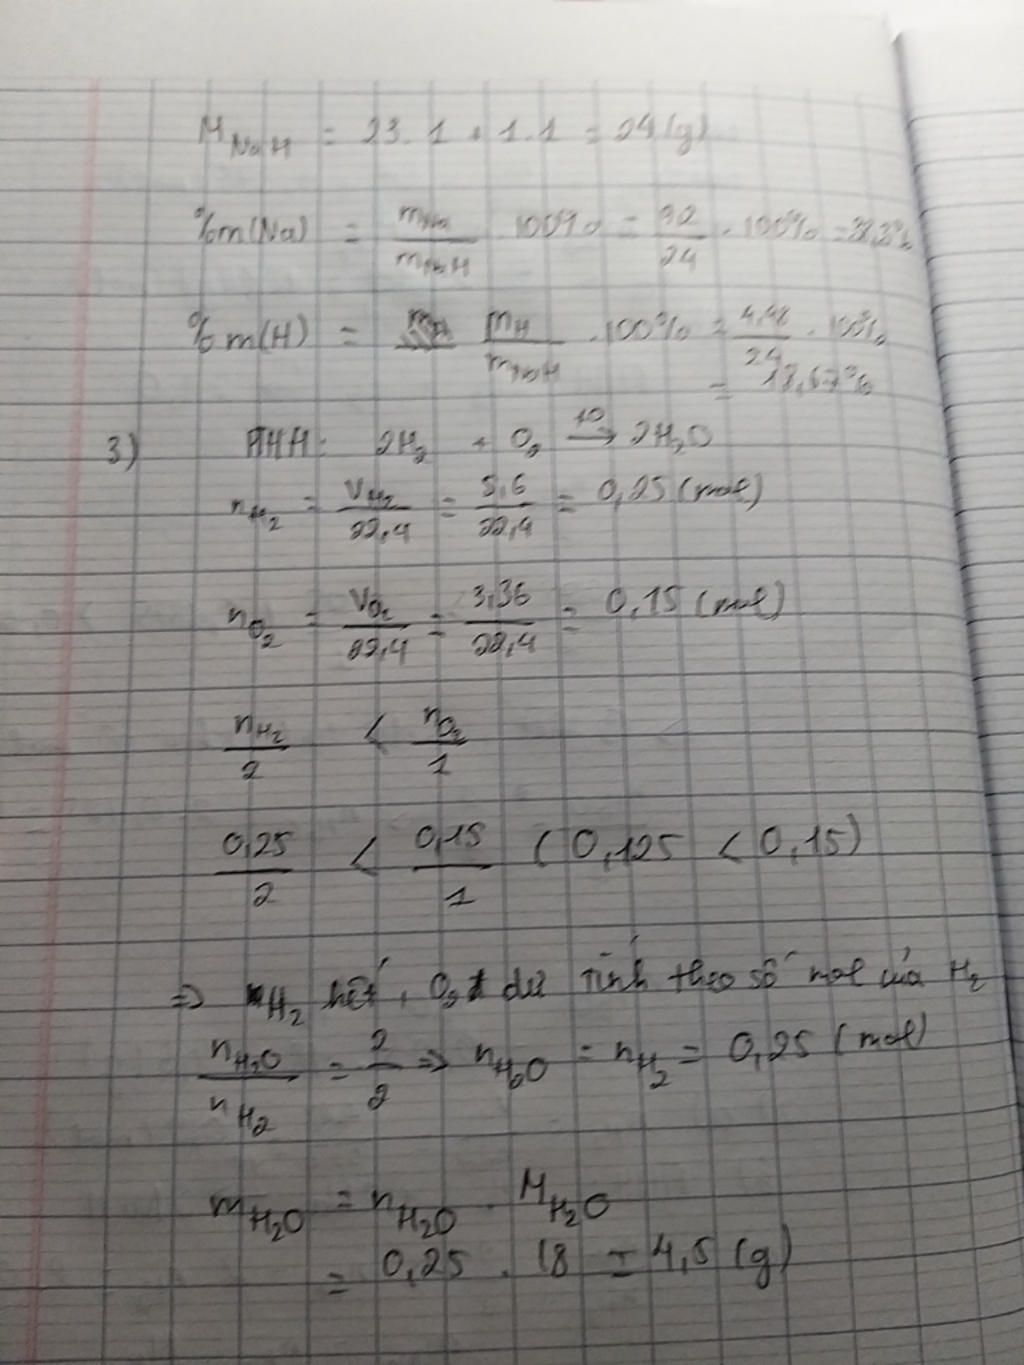 M NaH = 23.1 + 1.1 = 24 (g)
%m(Na) = mNa / mNaH 100% = / 24 . 100% =
%m(H) = mH / mNaH . 100% = 4,48 / 24 . 100%
= 18,67%
3) PTHH: 2H₂ + O₂ →(t0) 2H₂O
nH₂ = VH₂ / 22,4 = 5,6 / 22,4 = 0,25 (mol)
nO₂ = VO₂ / 22,4 = 3,36 / 22,4 = 0,15 (mol)
nH₂ / 2 < nO₂ / 1
0,25 / 2 < 0,15 / 1 (0,125 < 0,15)
=> H₂ hết, O₂ dư tính theo số mol của H₂
nH₂O / nH₂ = 2 / 2 => nH₂O = nH₂ = 0,25 (mol)
mH₂O = nH₂O . MH₂O
= 0,25 . 18 = 4,5 (g)